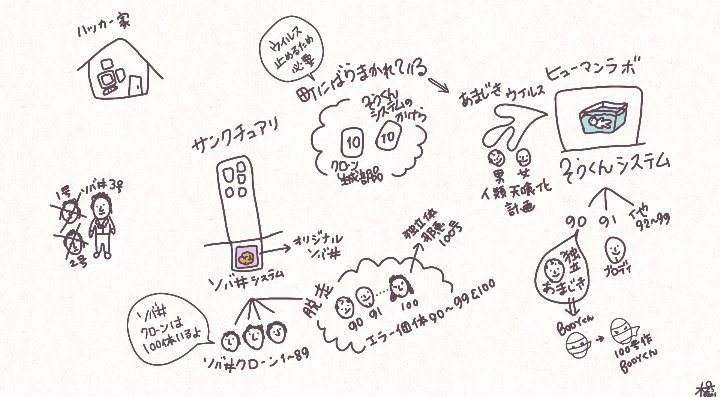 ハッカー家
ウイルス
止めるため
必要
町にばらまかれている
ぞうくん
システムの
かけら
10
10
クローン
生成部品
あまじきウイルス
男 女
人類天喰化
計画
ヒューマンラボ
ぞうくんシステム
90 91 イヤ
92〜99
独立
あまじき
ブロディ
BOOYくん
100号作
BOOYくん
サンクチュアリ
オリジナル
ソバ丼
ソバ丼システム
1号
ソバ丼3号
2号
ソバ丼
クローンは
100体いるよ
ソバ丼クローン1〜89
脱走
独立体
邪悪
100号
90 91 100
エラー個体90〜99と100